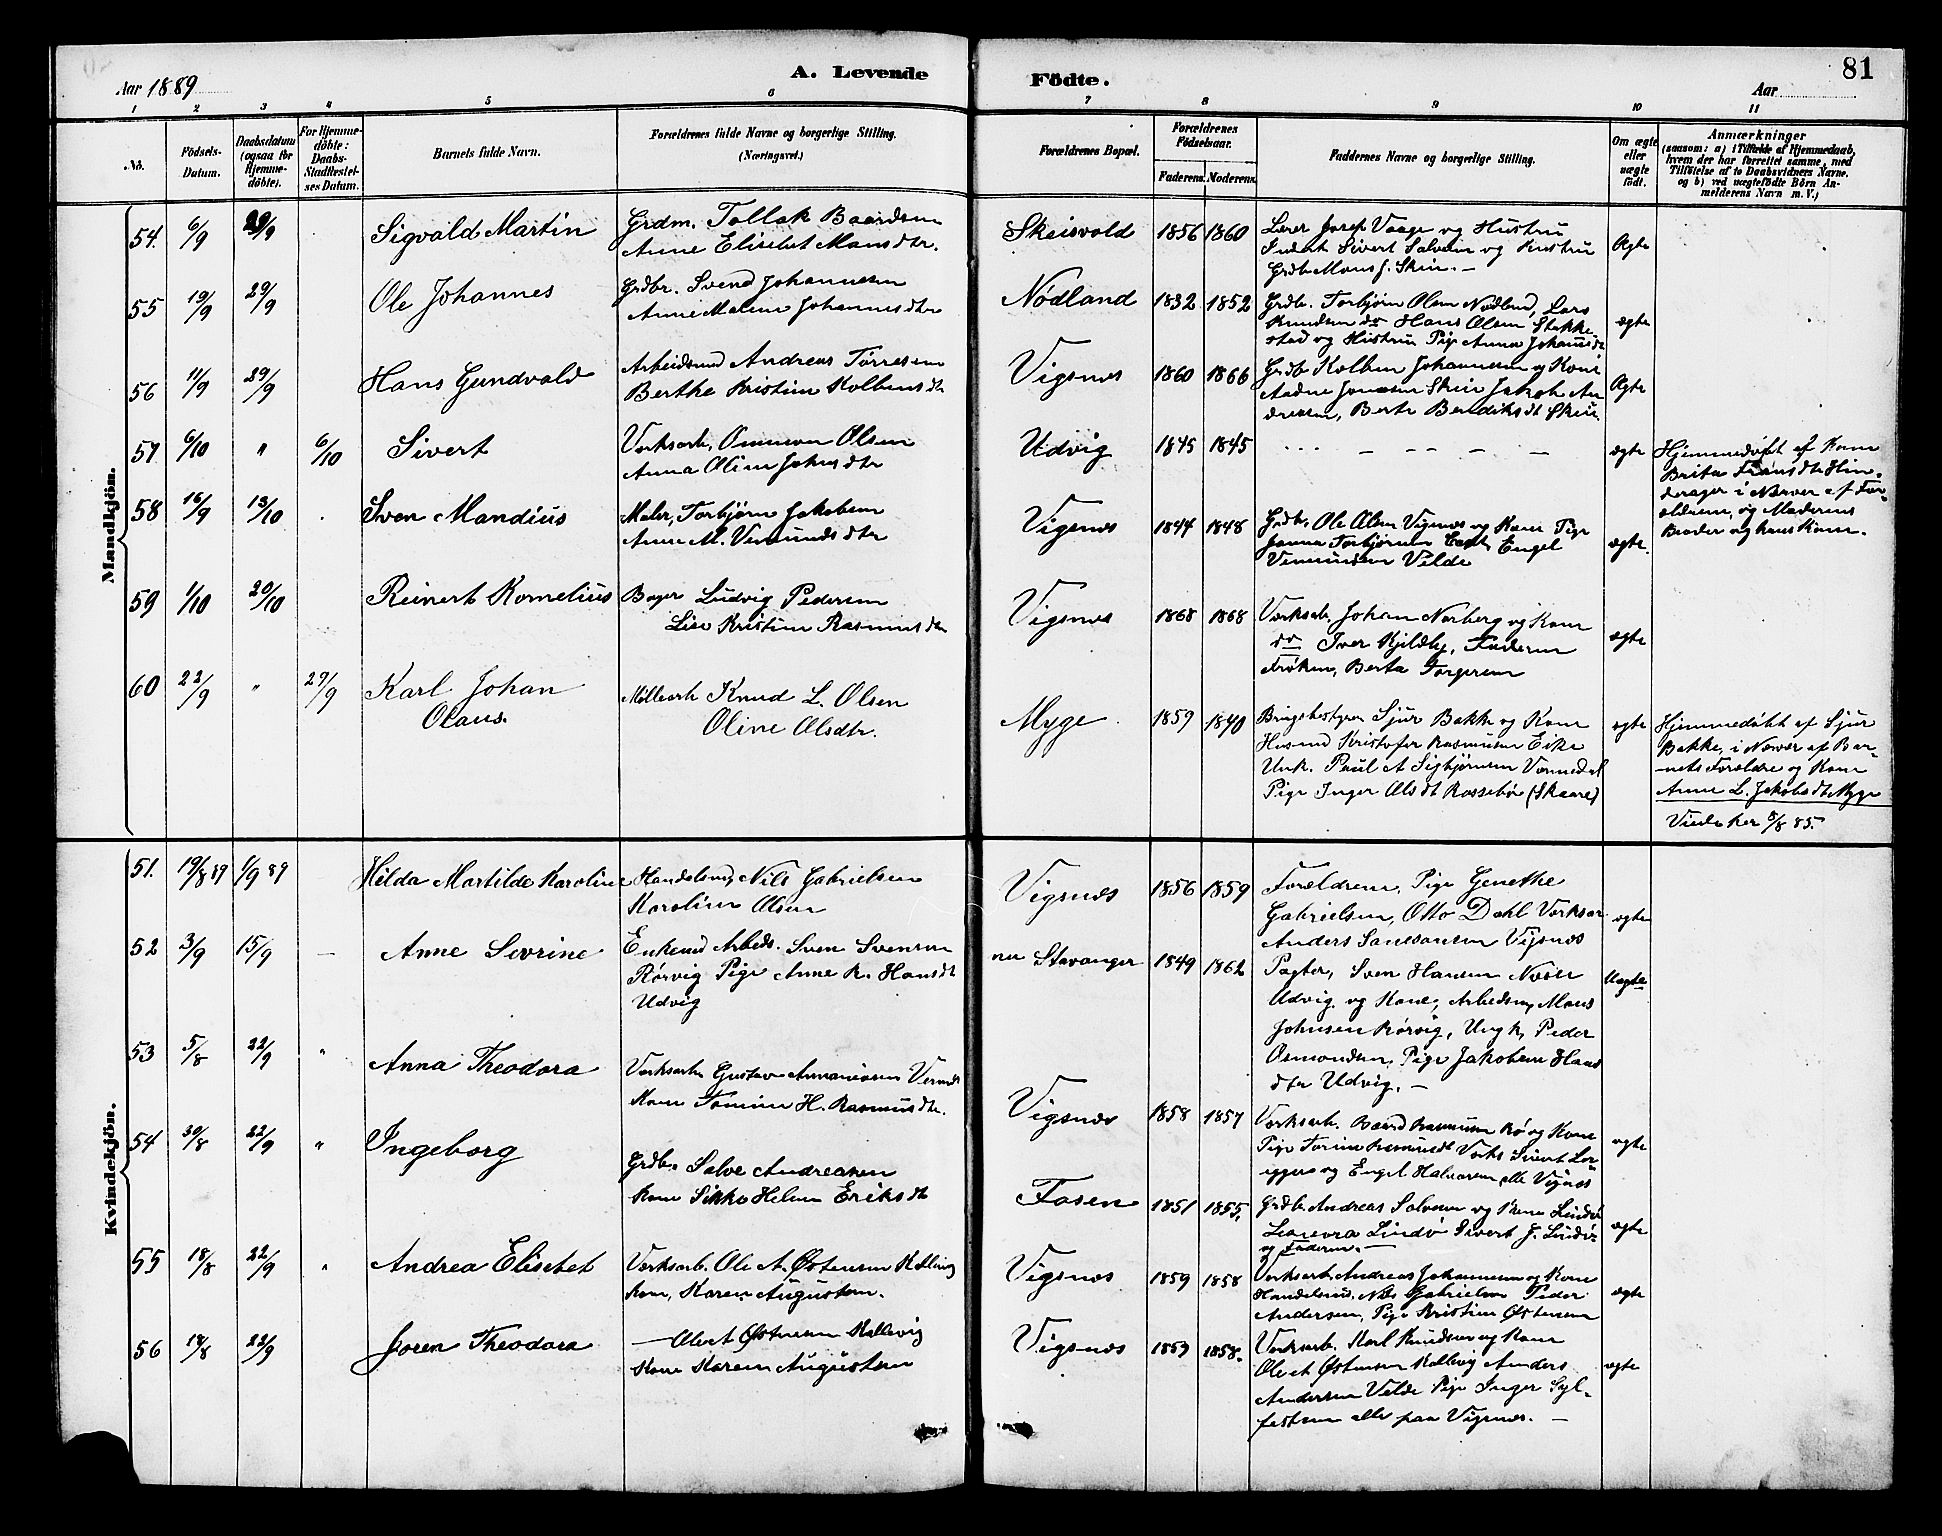 Aar 1889
A. Levende
Födte.
81
Aar
1 2 3 4 5 6 7 8 9 10 11
No.
Födsels-
Datum.
Daabsdatum
(ogsaa for
Hjemme-
döbte).
For Hjemme-
döbte:
Daabs-
Stadfæstel-
ses Datum.
Barnets fulde Navn.
Forældrenes fulde Navne og borgerlige Stilling.
(Næringsvei.)
Forældrenes Bopæl.
Forældrenes
Födselsaar.
Faderens. Moderens.
Faddernes Navne og borgerlige Stilling.
Om ægte
eller
uægte
født.
Anmærkninger
(saasom: a) i Tilfælde af Hjemmedaab,
hvem der har forrettet samme, med
Tilföielse af to Daabsvidners Navne.
og b) ved uægtefödte Börn An-
melderens Navn m. V.)
Mandkjön.
54. 6/9 29/9 Sigvald Martin
Grdm. Tollak Baardsen
Anne Elisebet Mansdtr.
Skeisvold 1856 1860
Lærer Josef Vaage og Hustru
Sivert Salvesen og Hustru
Grdb Mons J. Skeie. —
Ægte
55 19/9 29/9 Ole Johannes
Grdbr. Svend Johannesen
Anne Malene Johannesdtr
Nødland 1832 1852
Grdb. Torbjørn Olsen Nødland, Lars
Knudsen do Hans Olsen Stakke-
stad og Hustru Pige Anna Johansdt
ægte
56 11/9 29/9 Hans Gundvald
Arbeidsmd Andreas Tørresen
Berthe Kristine Kolbensdtr
Vigsnes 1860 1866
Grdb Kolben Johannesen og Kone
Aadne Jonasen Skeie Jakob An-
dreasen, Berte Bendiksdt Skeie
Ægte
57 6/10 " 6/10 Sivert
Verksarb. Ommon Olsen
Anna Oline Johnsdtr
Udvig 1845 1845
. . . — — — — —
ægte
Hjemmedøbt af Kone
Brita Fransdtr Hin-
derager i Nærvær af For-
ældrene, og Moderens
Broder og hans Kone.
58 16/9 13/10 Sven Mandius
Maler, Torbjørn Jakobsen
Anne M. Vermundsdtr
Vigsnes 1844 1848
Grdb. Ole Olsen Vigsnes og Kone Pige
Janna Torbjørnsen Engel
Vermundsen Velde
ægte.
59 1/10 20/10 Reinert Kornelius
Bager Ludvig Pedersen
Lise Kristine Rasmusdtr
Vigsnes 1868 1868
Verksarb. Johan Norberg og Kone
do Iver Kjildby, Faderen
Frøken, Berta Torgersen
ægte
60 22/9 " 29/9 Karl Johan
Olaus.
Møllearb Knud L. Olsen
Oline Olsdtr.
Myge 1859 1840
Brugsbestyrer Sjur Bakke og Kone
Husmd Kristofer Rasmusen Eike
Unk. Paul A Sigbjørnsen Vormedal
Pige Inger Olsdt Rossebø (Skaare)
ægte
Hjemmedøbt af Sjur
Bakke, i Nærvær af Bar-
nets Forældre og Kone
Anne L. Jakobsdtr Myge
Viede her 8/8 85.
Kvindekjön.
51. 19/8 89 1/9 89 — Hilda Martilde Karoline
Handelsmd, Nils Gabrielsen
Karoline Olsen
Vigsnæs 1856 1859
Forældrene, Pige Genethe
Gabrielsen, Otto Dahl Verksar
Anders Vigsnæs
ægte
52 3/9 15/9 — Anne Sevrine
Enkemd Arbeds. Sven Svensen
Rørvig Pige Anne K. Hansdt
Udvig
nu Stavanger 1849 1862
Pagter, Sven Hansen
Udvig og Kone, Arbedsm, Mons
Johnsen Rørvig, Ungk, Peder
Osmondsen, Pige Jakobine Hans
dtr Udvig. —
Uægte
53 5/8 22/9 " Anna Theodora
Verksarb. Gustav
Kone Tomine H. Rasmusdtr.
Vigsnæs 1858 1857
Verksarb. Baard Rasmusen Rø og Kone
Pige Torine Rasmusdt Verks Sivert
og Engel Halvorsen alle Vigsnæs
ægte
54 30/8 22/9 " Ingeborg
Grdb. Salve Andreasen
Kone Sikke Helene Eriksdt
Fosen 1851 1855.
Grdb. Andreas Salvesen og Kone Lindø
Lindø Sivert J. Lindø
og Faderen. —
ægte
55 18/8 22/9 " Andrea Elisebet
Verksarb. Ole A. Østensen Kallevig
Kone, Karen Augustsen.
Vigsnæs 1859 1858
Verksarb Andreas Johannesen og Kone
Handelsmd. Nils Gabrielsen Peder
Andersen, Pige Kristine Østensen
ægte
56 18/8 22/9 Joren Theodora
— Ole A Østensen Kallevig
Kone Karen Augustsen
Vigsnæs 1859 1858.
Verksarb. Karl Knudsen og Kone
Ole A Østensen Kallevig Anders
Andersen Velde Pige Inger Syl-
festsen alle paa Vigsnæs. —
ægte